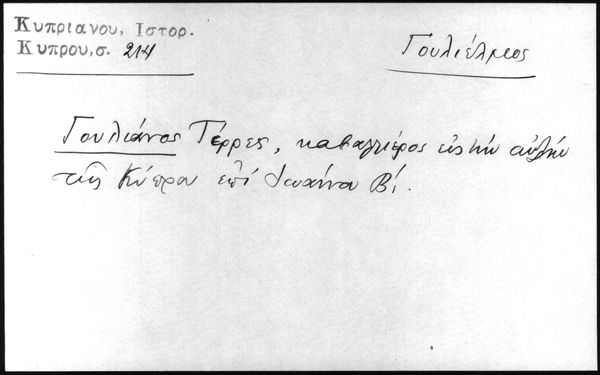 Κυπριανου, Ιστορ.
Κυπρου, σ. 214
Γουλιέλμος
Γουλιάνος Τέρρες, καβαλιέρος εις την αυλήν
της Κύπρου επί Ιωάννου Β!.